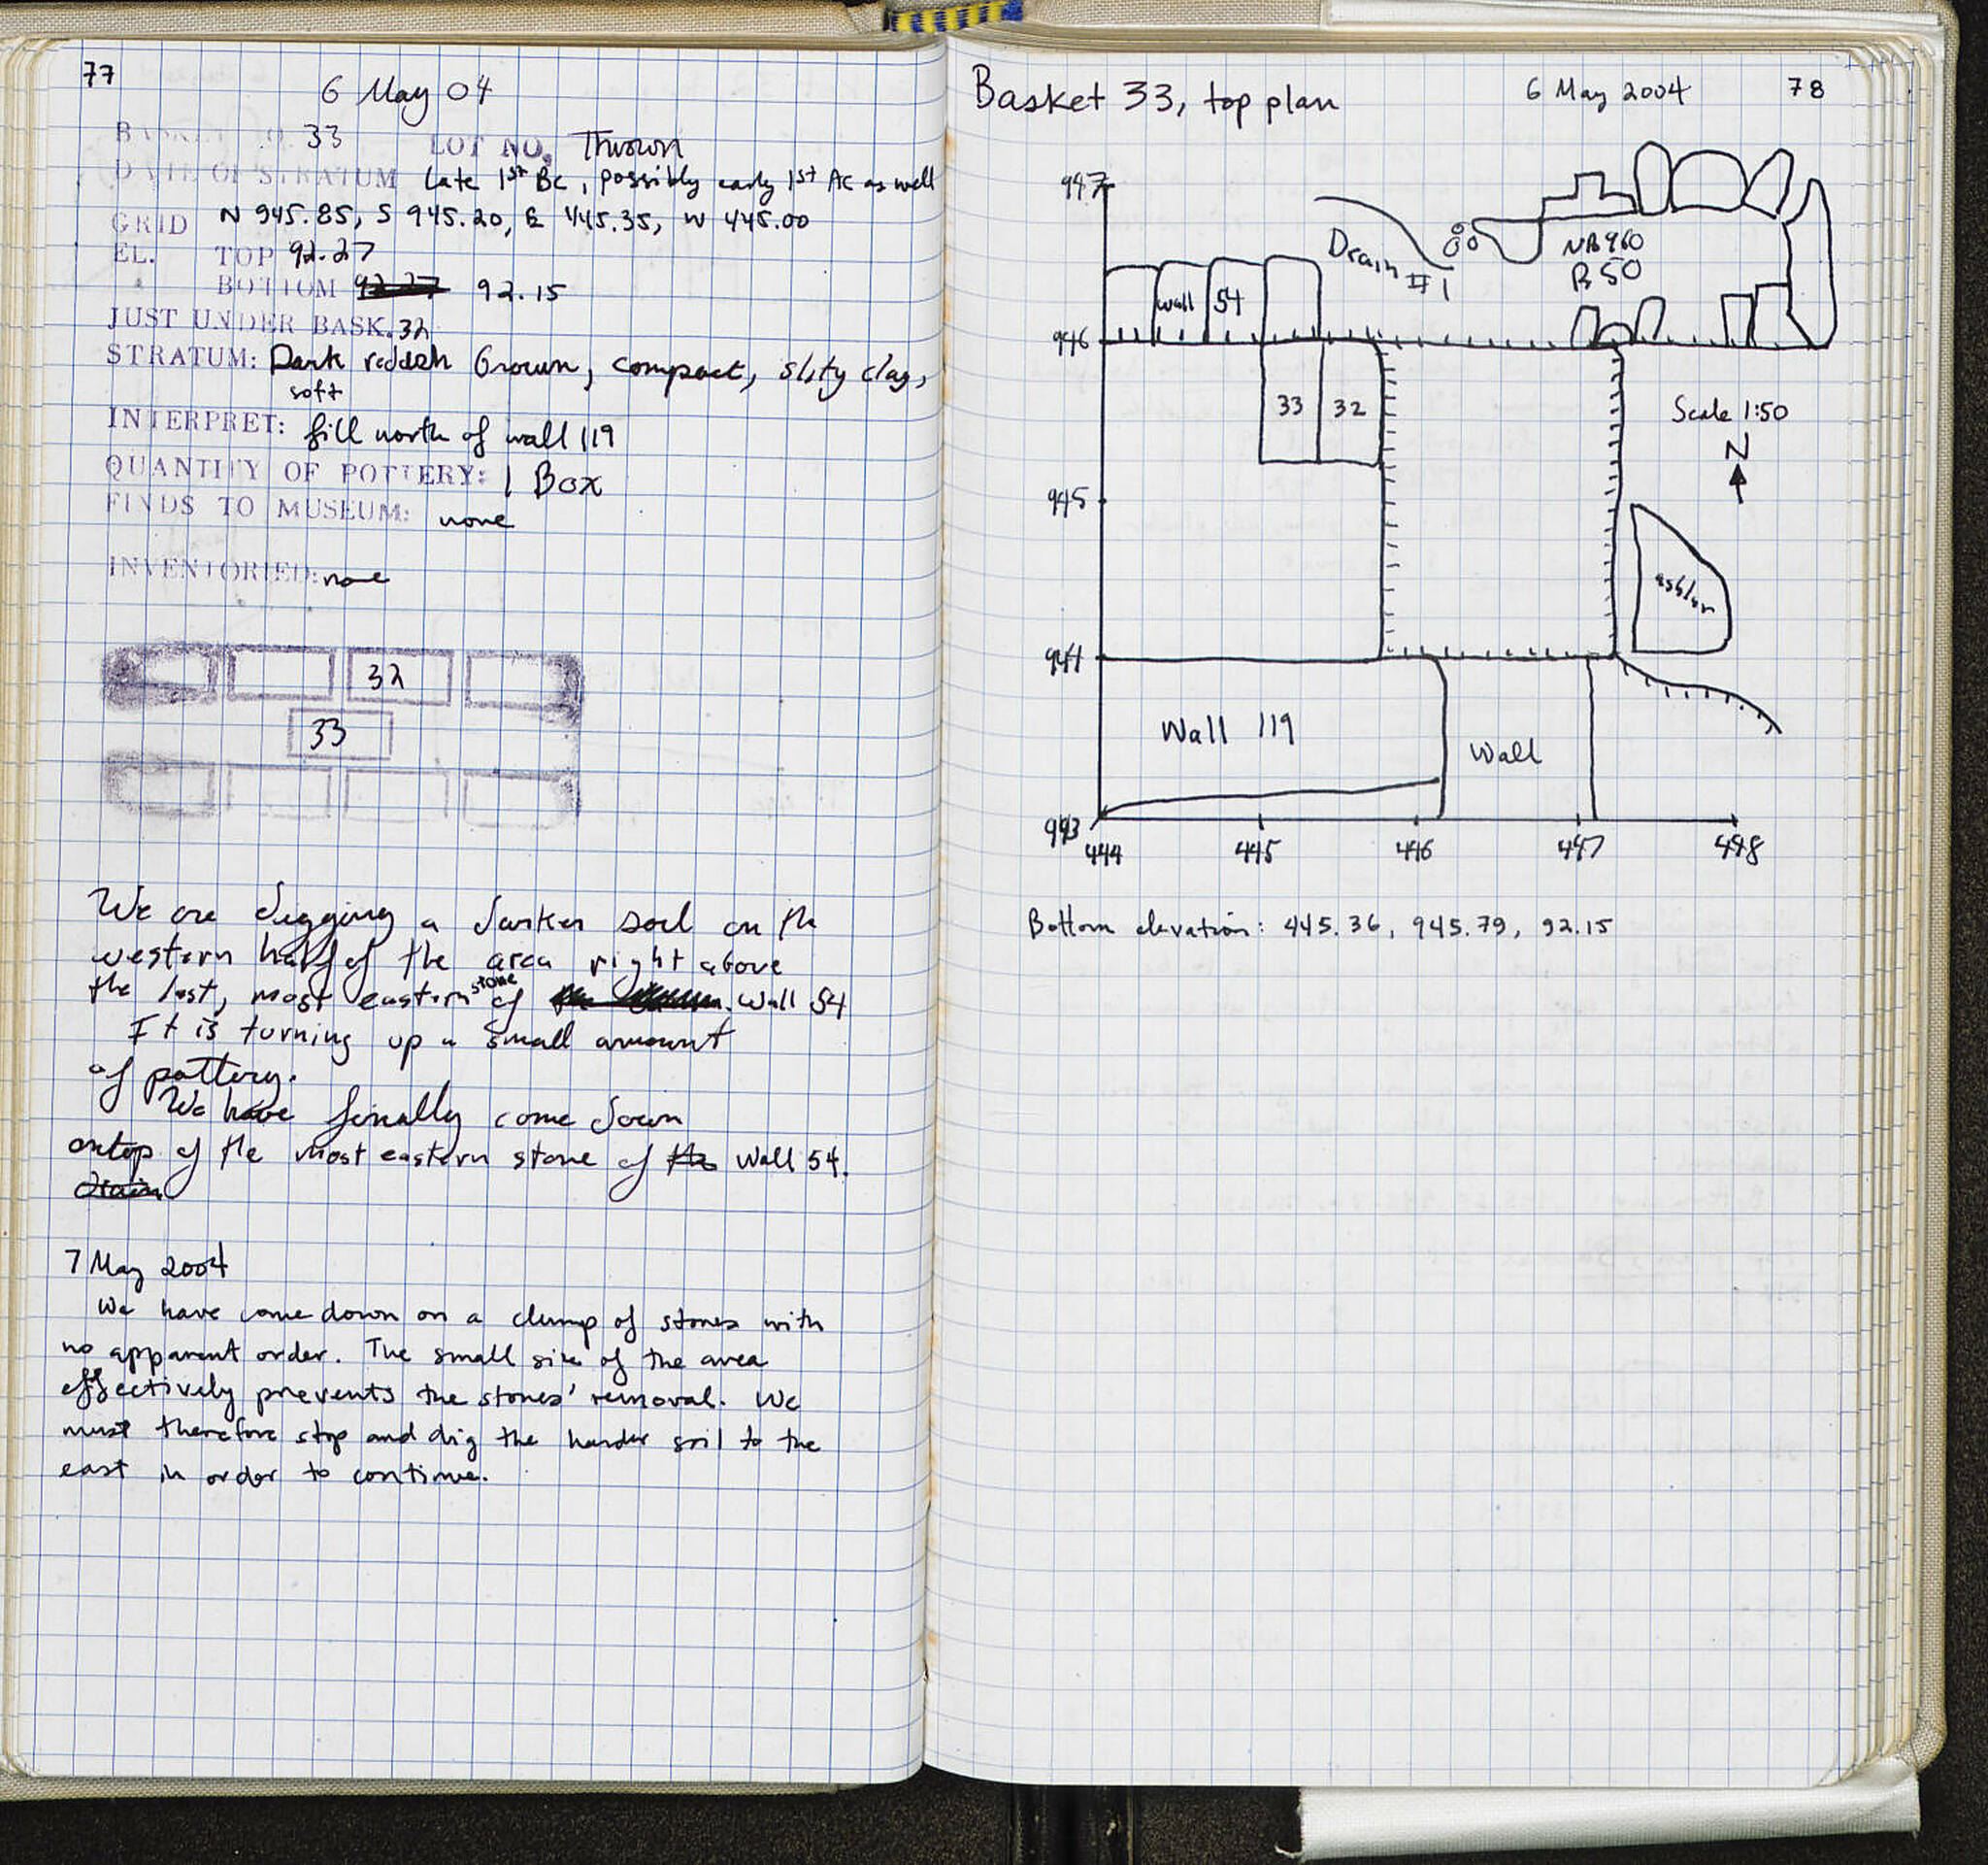 77
6 May 04
BASKET NO. 33 LOT NO. Thrown
DATE OF STRATUM Late 1st BC, possibly early 1st AC as well
GRID N 945.85, S 945.20, E 445.35, W 445.00
EL. TOP 92.27
BOTTOM 92.27 92.15
JUST UNDER BASK. 32
STRATUM: Dark reddish brown, compact, silty clay,
soft
INTERPRET: fill north of wall 119
QUANTITY OF POTTERY: 1 Box
FINDS TO MUSEUM: none
INVENTORIED: none
32
33
We are digging a darker soil on the
western half of the area right above
the last, most eastern stone of Wall 54
It is turning up a small amount
of pottery.
We have finally come down
ontop of the most eastern stone of the Wall 54.
drain
7 May 2004
We have come down on a clump of stones with
no apparent order. The small size of the area
effectively prevents the stones' removal. We
must therefore stop and dig the harder soil to the
east in order to continue.
Basket 33, top plan 6 May 2004 78
947
Drain #1
NB 960
B 50
wall 54
946
33 32
Scale 1:50
N
945
ashlar
944
Wall 119
Wall
943
444 445 446 447 448
Bottom elevation: 445.36, 945.79, 92.15